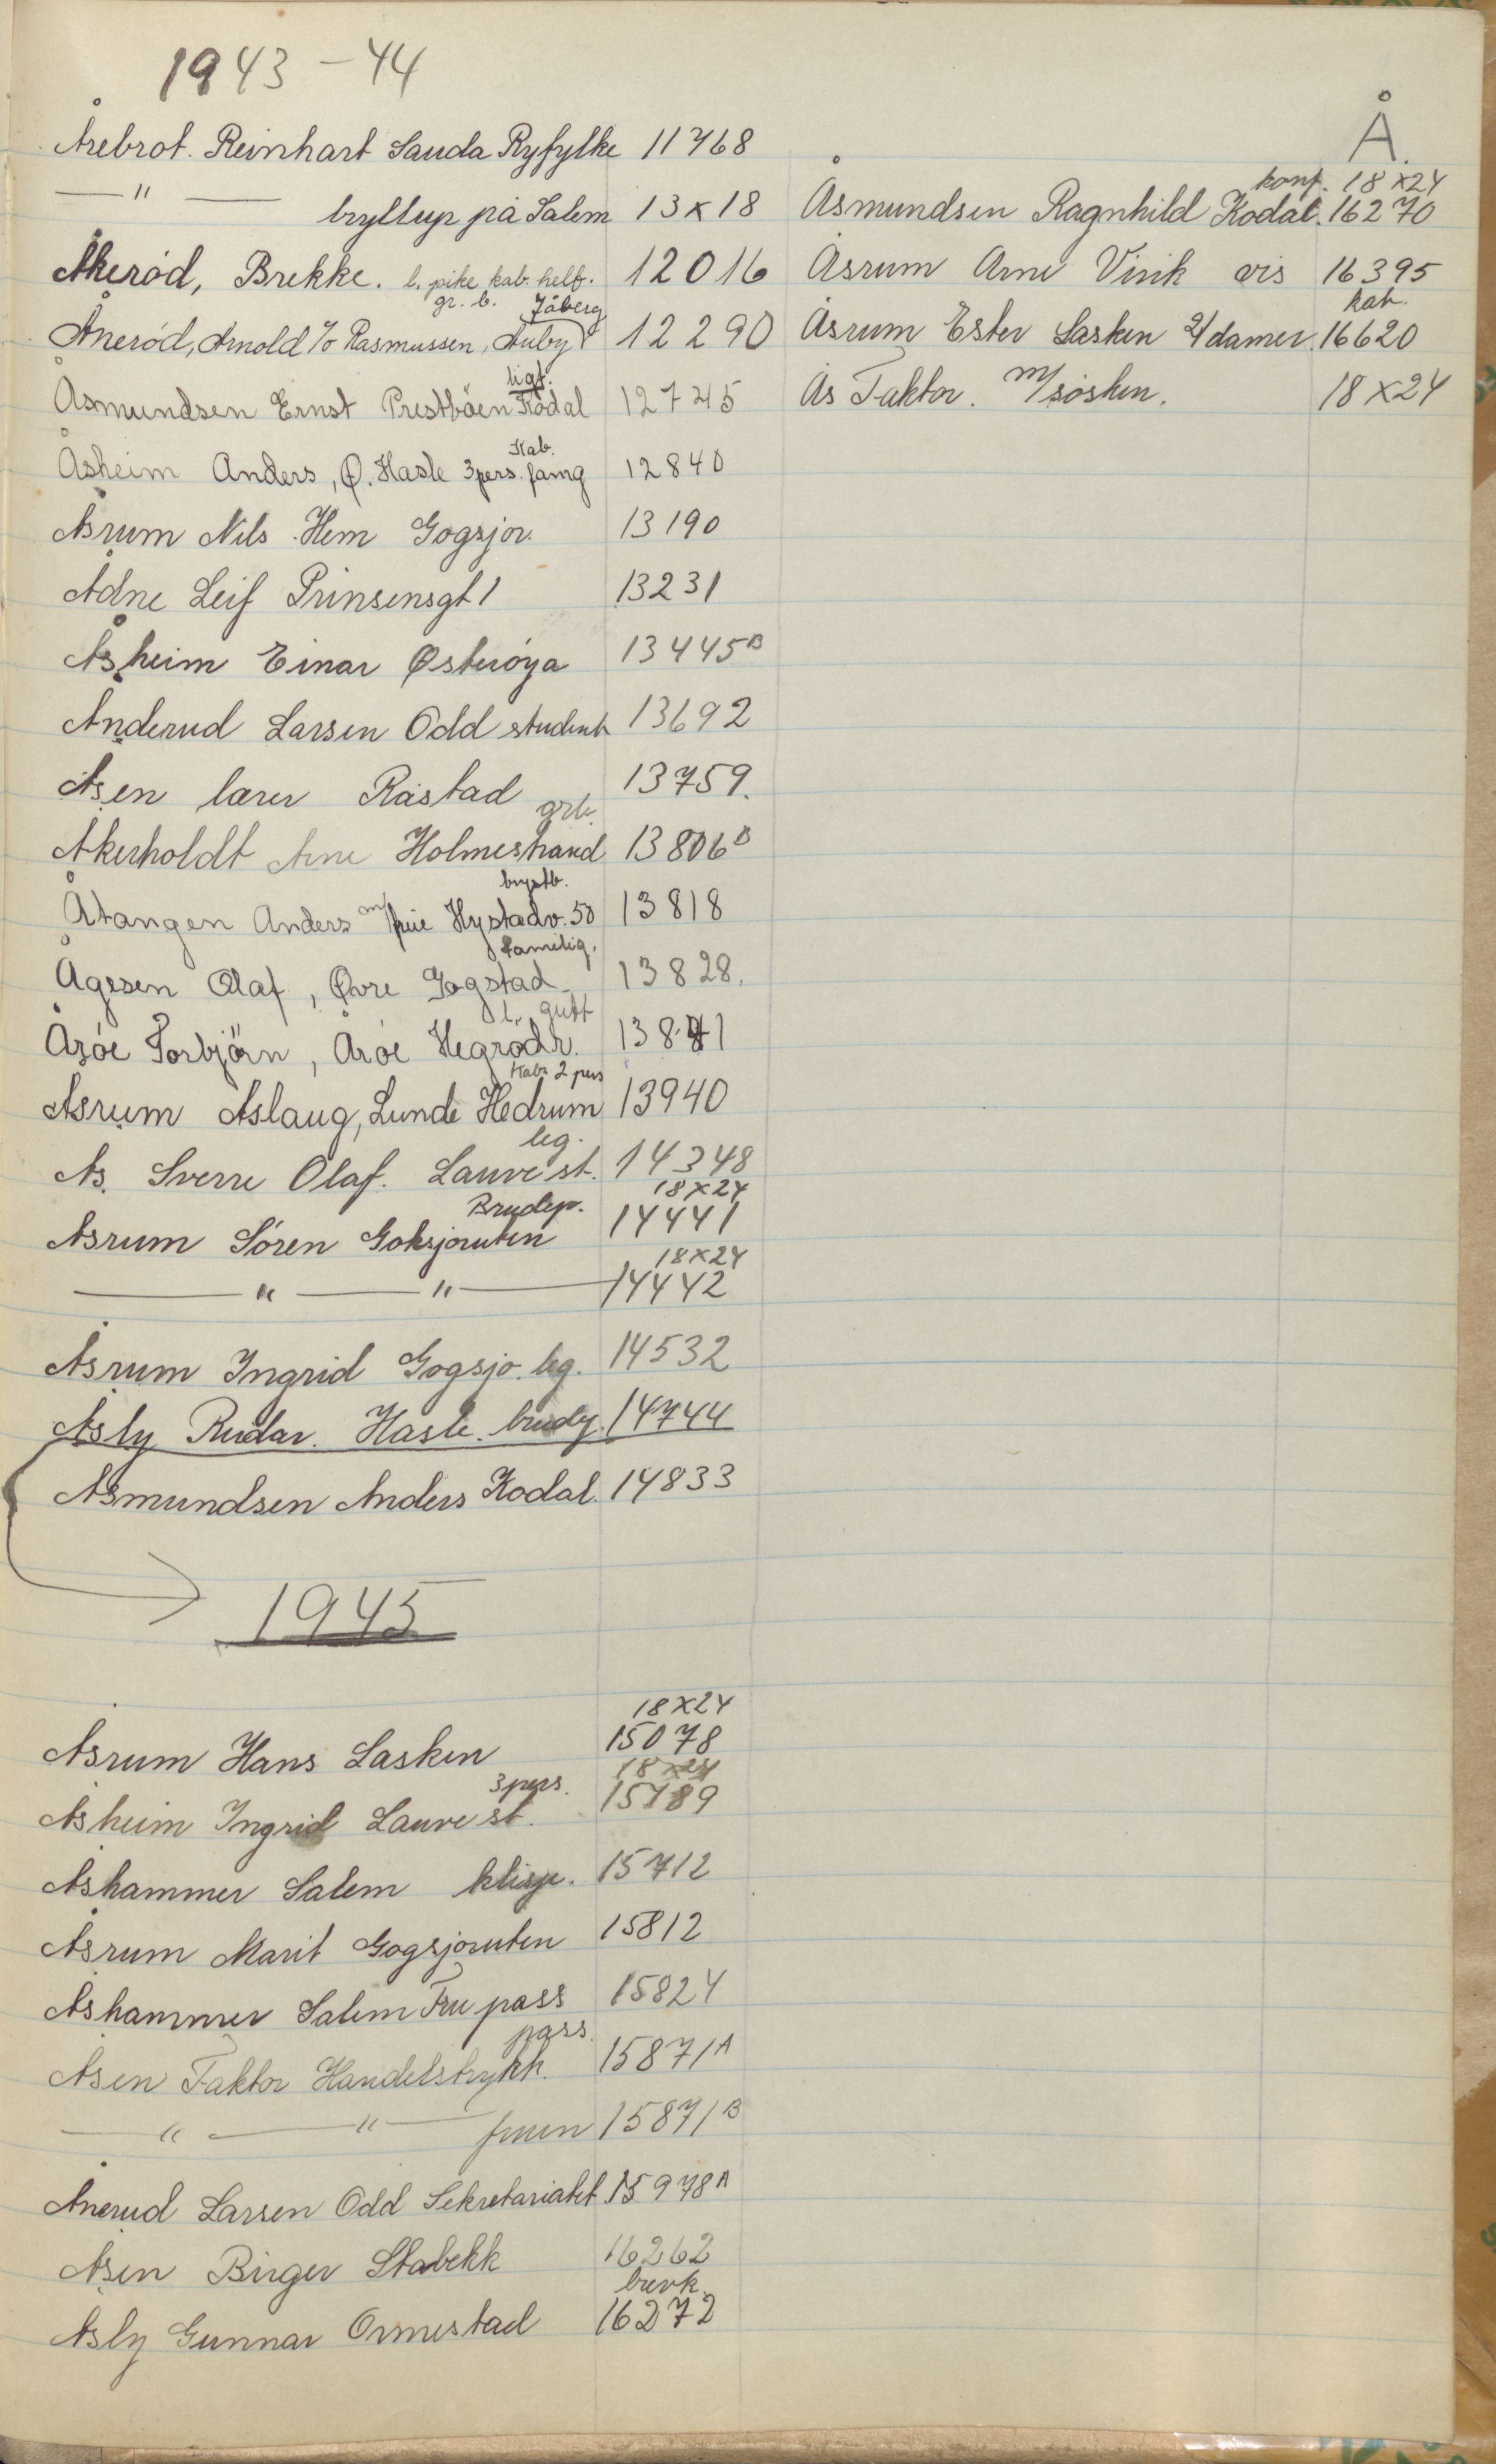 1943 - 44
Årebrot. Reinhart Sauda Ryfylke 11768
— " — bryllup på Salem 13x18
Åkerød, Brekke. l. pike kab. helf. 12016
gr. b. Jåberg
Ånerød, Arnold c/o Rasmussen, Auby 12290
ligt.
Åsmundsen Ernst Prestbøen Kodal 12745
Kab.
Åsheim Anders, Ø. Hasle 3 pers. famg 12840
Åsrum Nils Hem Gogsjor. 13190
Ådne Leif Prinsensgt 1 13231
Åsheim Einar Østerøya 13445B
Ånderud Larsen Odd student 13692
Åsen lærer Råstad 13759.
grb.
Åkerholdt Arne Holmestrand 13806B
brystb.
Åtangen Anders m/frue Hystadv. 50 13818
familig.
Ågesen Olaf, Øvre Gogstad 13828.
l. gutt
Årøe Torbjörn, Årøe Hegrodr. 13841
Kab 2 pers
Åsrum Aslaug, Lunde Hedrum 13940
leg.
Ås. Sverre Olaf. Lauve st. 14348
Brudep. 18x24
Åsrum Søren Goksjøruten 14441
18x24
— " — " — 14442
Åsrum Ingrid Gogsjø. leg. 14532
Åsly Rudar. Hasle. brudg. 14744
Åsmundsen Anders Kodal. 14833
1945
18x24
Åsrum Hans Lasken 15078
3 pers. 18x24
Åsheim Ingrid Lauve st. 15189
Åshammer Salem klisje. 15712
Åsrum Marit Gogsjøruten 15812
Åshammer Salem Fru pass 15824
pass.
Åsen Faktor Handelstrykk. 15871A
— " — " — fruen 15871B
Ånerud Larsen Odd Sekretariatet 15978A
Åsen Birger Stabekk 16262
brevk.
Åsly Gunnar Ormestad 16272
Å.
konf. 18x24
Åsmundsen Ragnhild Kodal. 16270
Åsrum Arne Virik vis 16395
kab.
Åsrum Ester Lasken 2/damer. 16620
Ås Faktor. m/søsken. 18x24